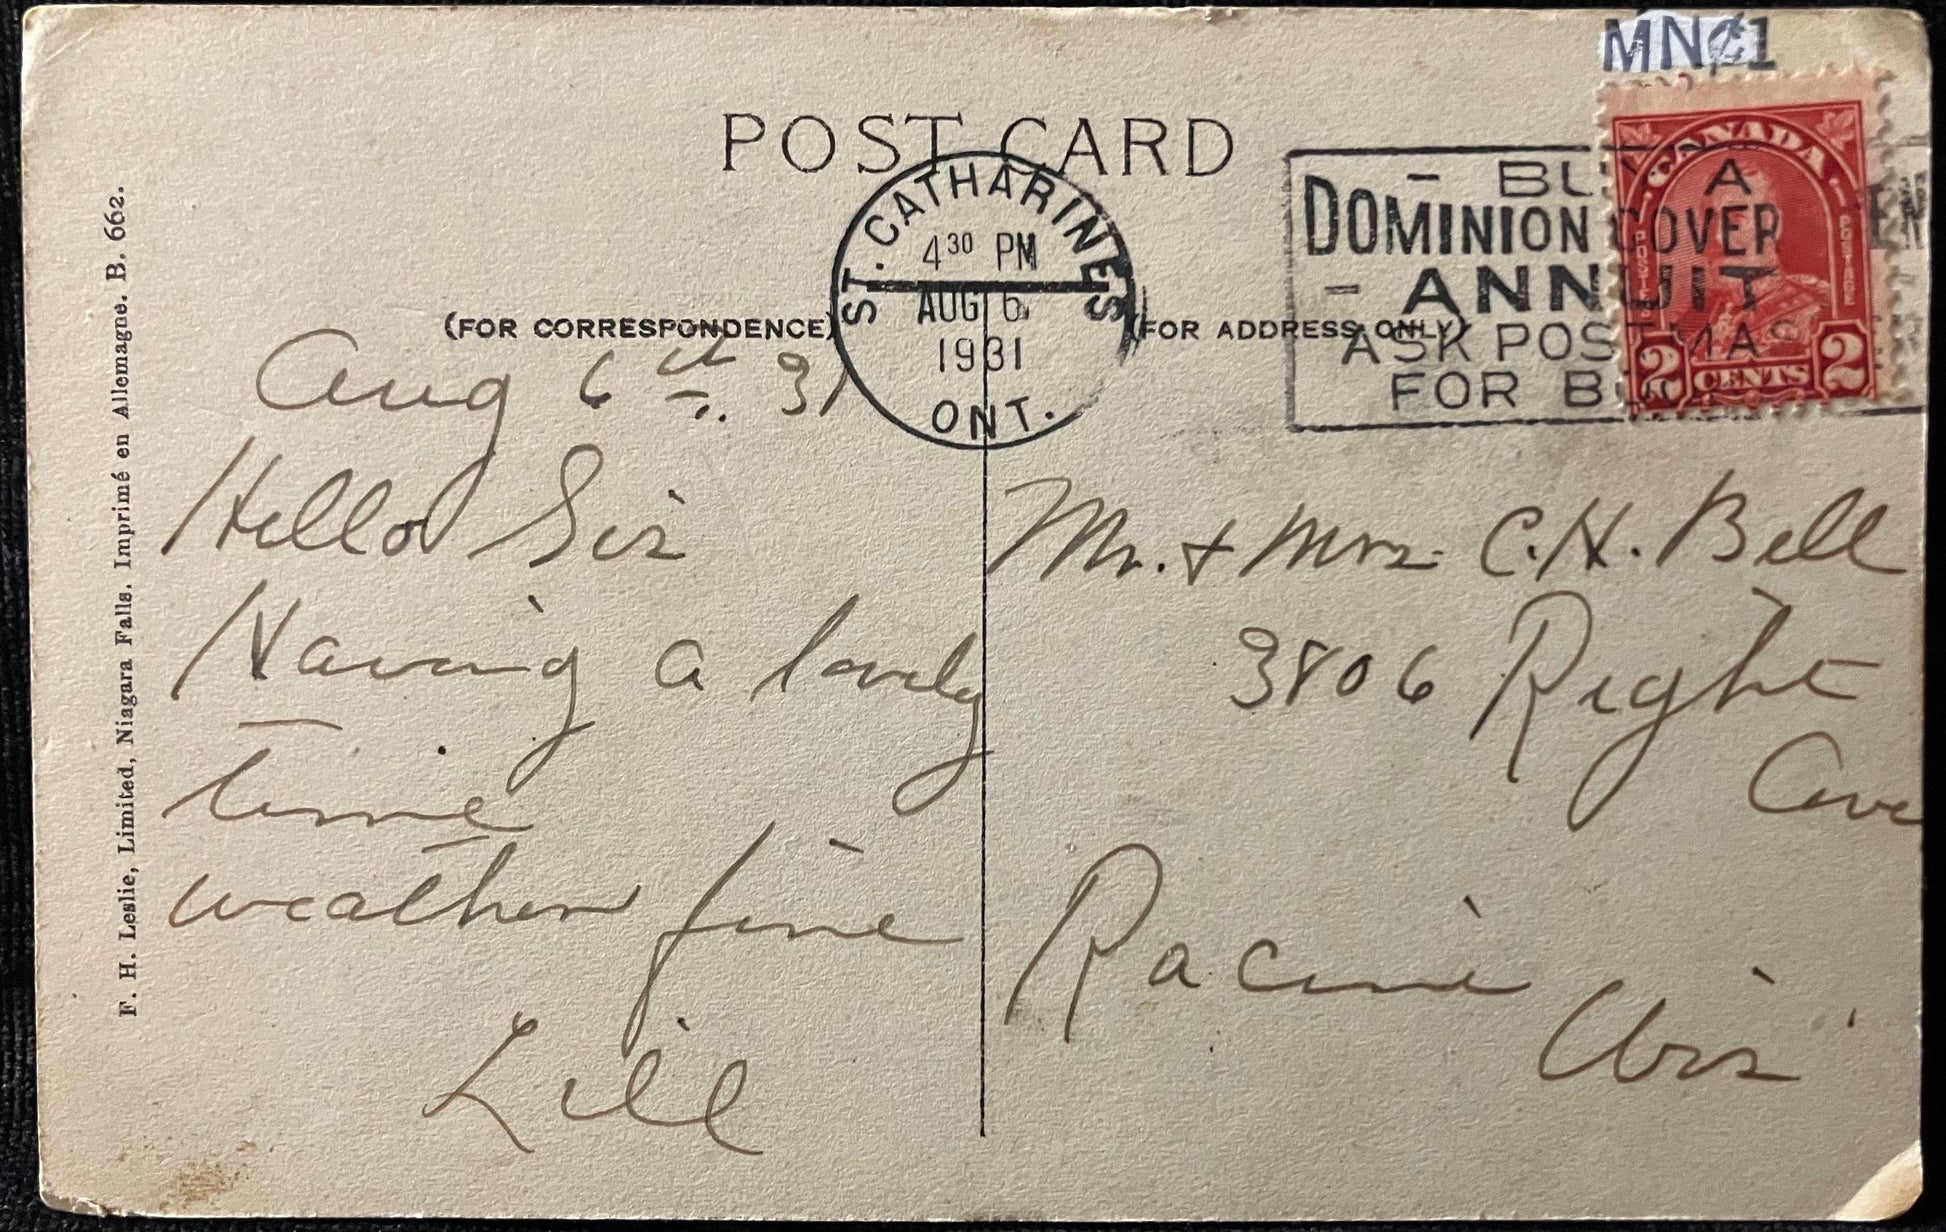 MN¢1
POST CARD
ST. CATHARINES
4 30 PM
AUG 6
1931
ONT.
- BU A
DOMINION GOVER
- ANNUIT
ASK POSTMAS
FOR B
CANADA
POSTAGE
2 CENTS 2
(FOR CORRESPONDENCE)
(FOR ADDRESS ONLY)
Aug 6th. 31
Hello Sis
Having a lovely
time
weather fine
Lill
Mr. & Mrs. C. H. Bell
3806 Right
Ave
Racine
Wis
F. H. Leslie, Limited, Niagara Falls. Imprimé en Allemagne. B. 662.